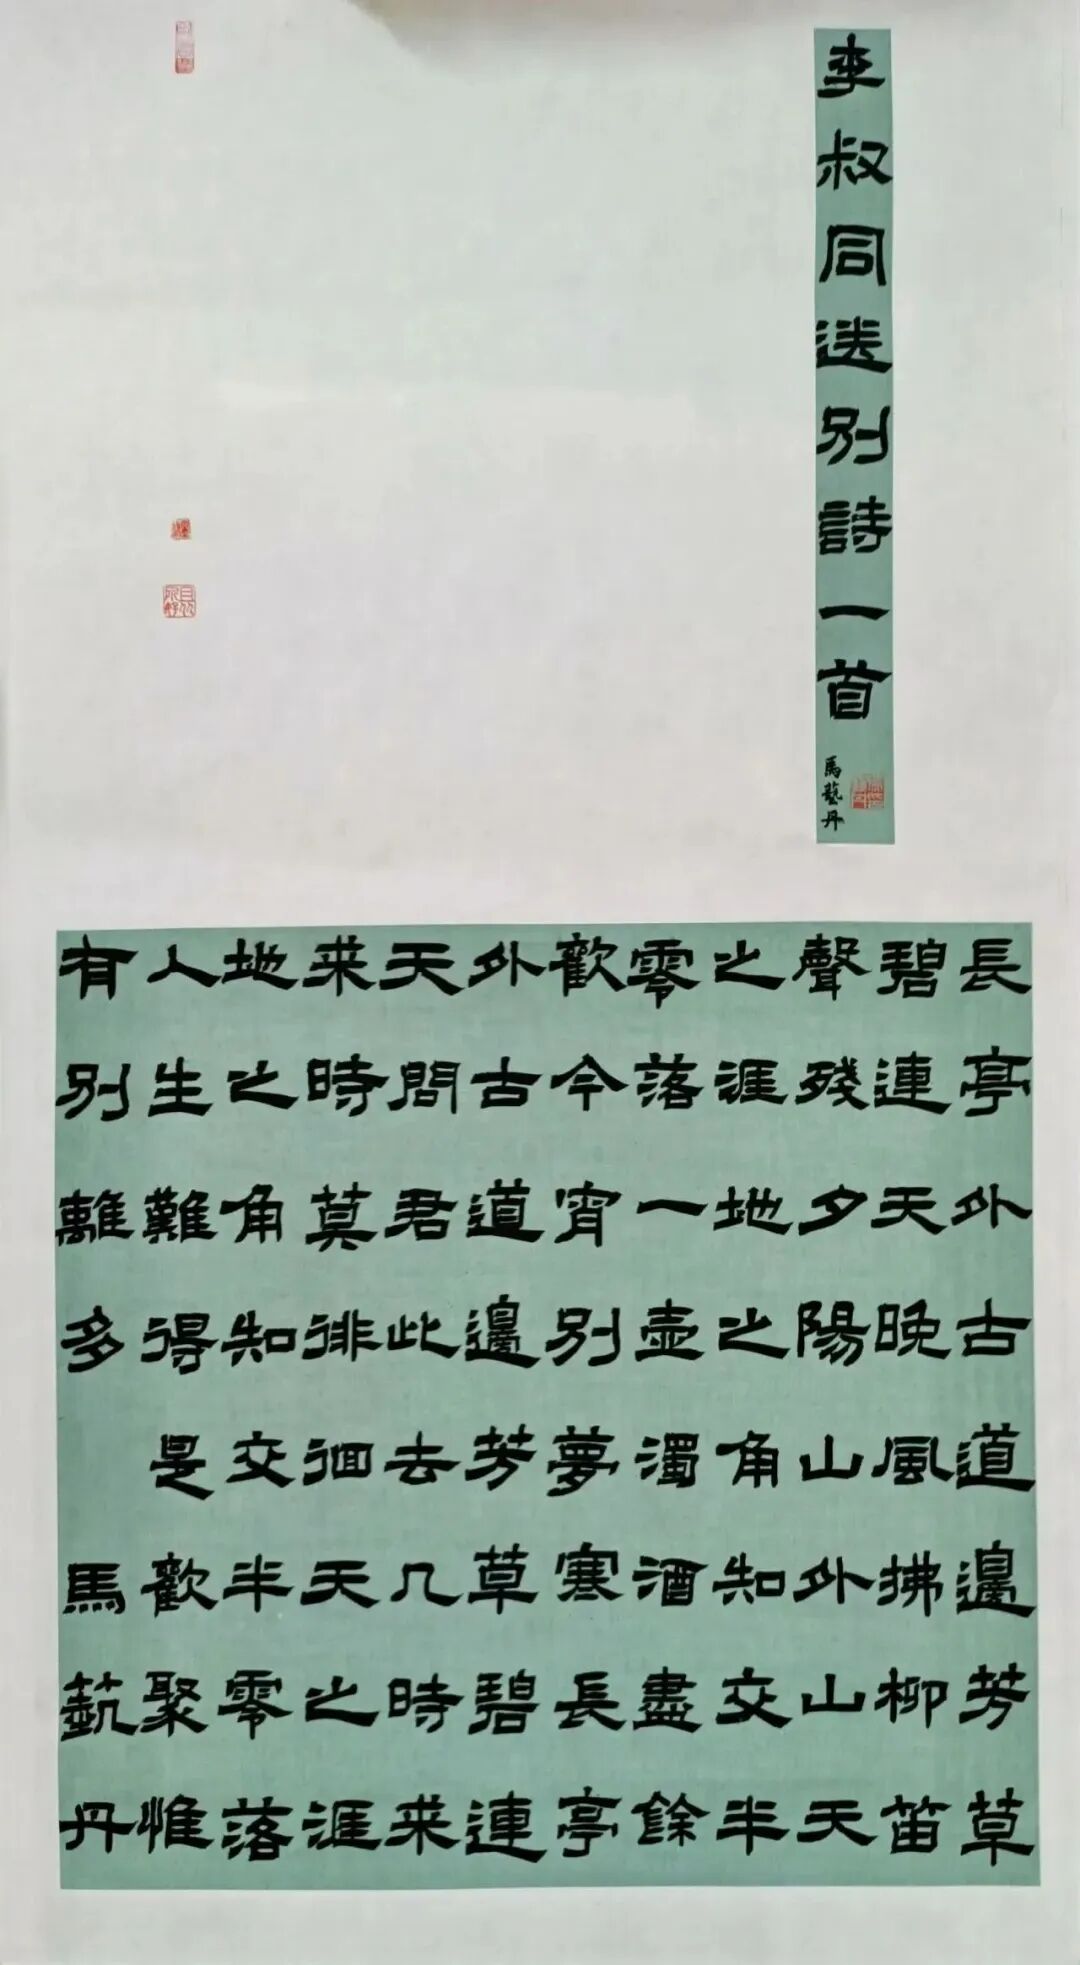 李叔同送別詩一首
馬藝丹
長亭外古道邊芳草
碧連天晚風拂柳笛
聲殘夕陽山外山天
之涯地之角知交半
零落一壺濁酒盡餘
歡今宵別夢寒長亭
外古道邊芳草碧連
天問君此去几時来
来時莫徘徊天之涯
地之角知交半零落
人生難得是歡聚惟
有別離多 馬藝丹